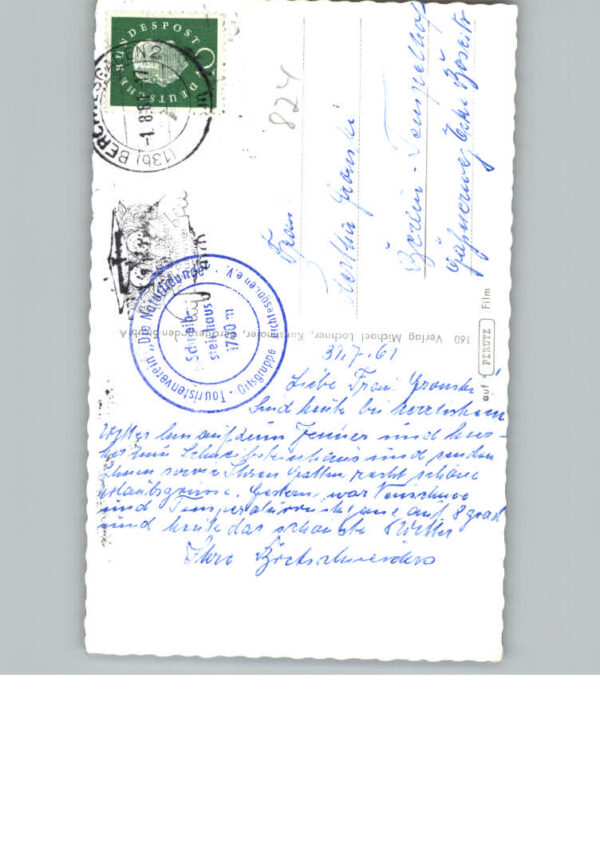 DEUTSCHE BUNDESPOST
(13b) BERCHTESG
-1.8.61
824
Frau
Hertha Gronski
Berlin-Tempelhof
Touristenverein „Die Naturfreunde"
Ortsgruppe Berchtesgaden e.V.
Schneib-
steinhaus
1700 m
160 Verlag Michael Lochner, Kunstanstalt, Berchtesgaden
auf PERUTZ Film
31.7.61
Liebe Frau Gronski!
Sind heute bei herrlichem
Wetter hinauf zum Jenner und
zum Schneibsteinhaus und senden
Ihnen sowie Ihrem Gatten recht schöne
Urlaubsgrüsse. Gestern war Neuschnee
und Temperaturrückgang auf 8 grad
und heute das schönste Wetter
Ihre